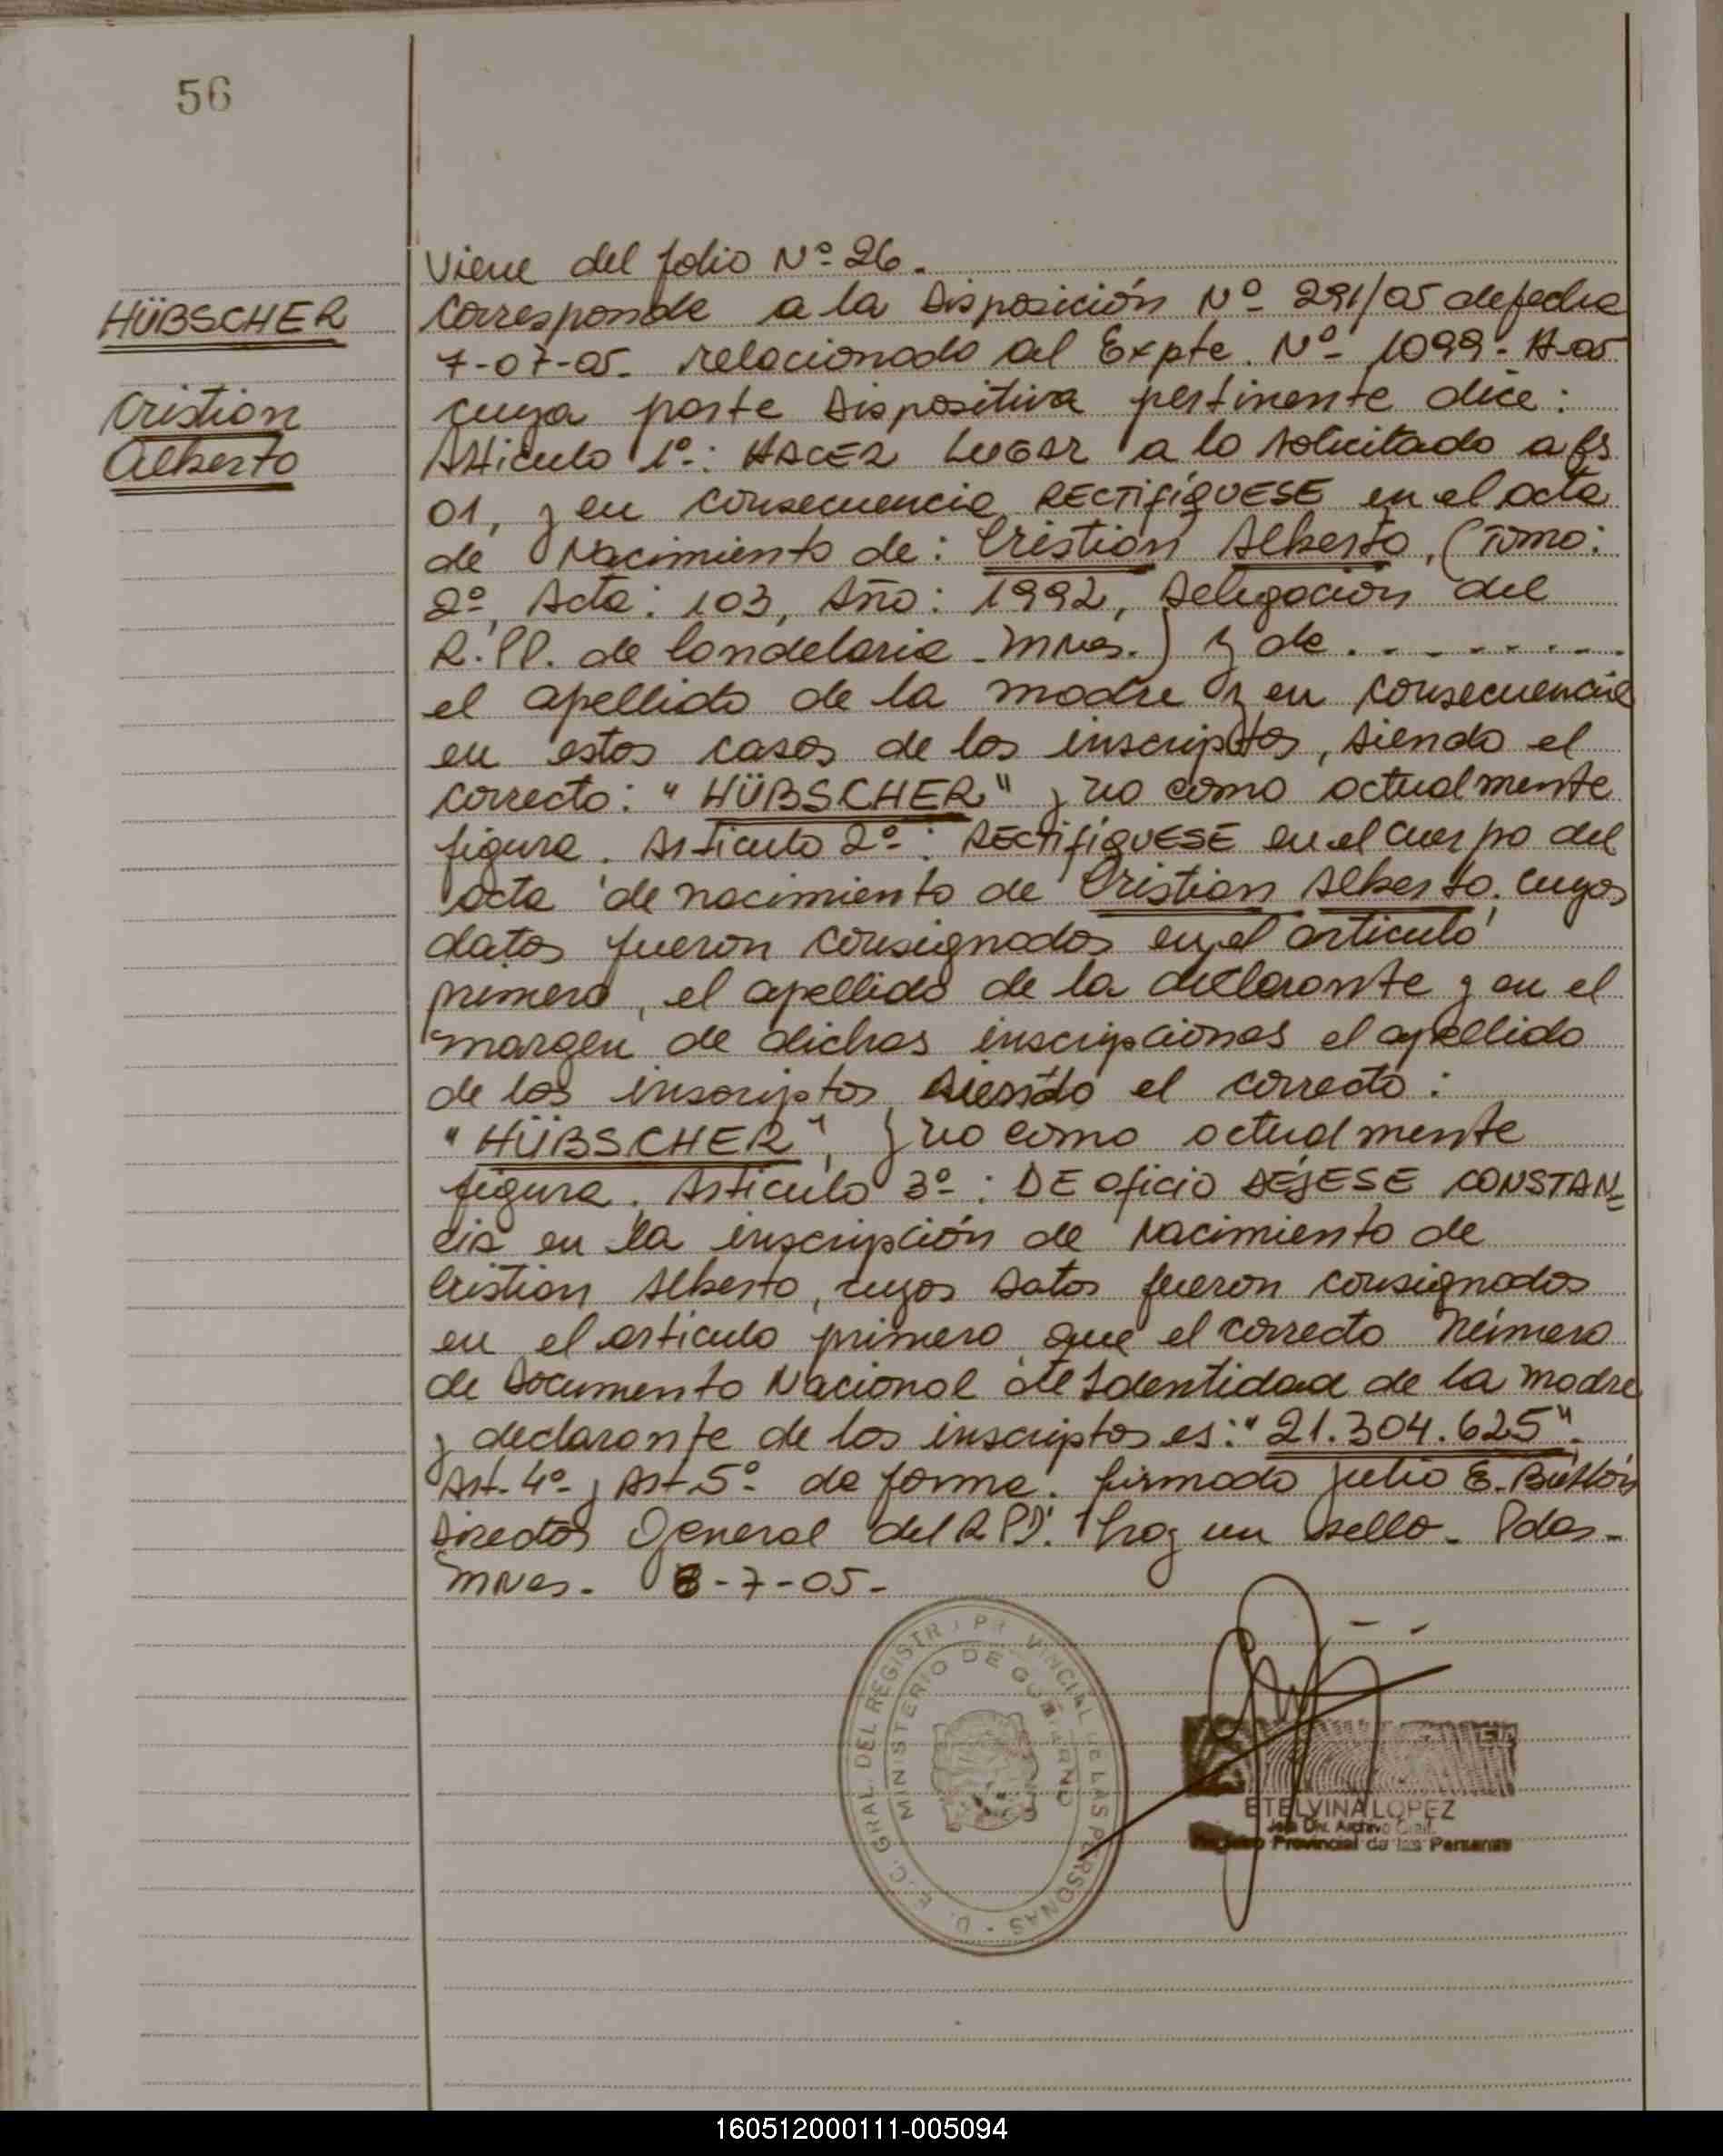 56
Viene del folio Nº 26.
HÜBSCHER
Corresponde a la Disposición Nº 291/05 de fecha
7-07-05. relacionado al Expte. Nº 1099-A-05
Cristian
cuya parte Dispositiva pertinente dice:
Alberto
Artículo 1º: HACER LUGAR a lo solicitado a fs
01, y en consecuencia RECTIFÍQUESE en el acta
de Nacimiento de: Cristian Alberto, (Tomo:
2º, Acta: 103, Año: 1992, Delegación del
R.PP. de Candelaria - Mnes.) y de . - - - - - - -
el apellido de la madre y en consecuencia
en estos casos de los inscriptos, siendo el
correcto: "HÜBSCHER" y no como actualmente
figura. Artículo 2º: RECTIFÍQUESE en el cuerpo del
acta de nacimiento de Cristian Alberto, cuyos
datos fueron consignados en el artículo
primero, el apellido de la declarante y en el
margen de dichas inscripciones el apellido
de los inscriptos siendo el correcto:
"HÜBSCHER", y no como actualmente
figura. Artículo 3º: DE oficio DÉJESE CONSTAN=
cia en la inscripción de Nacimiento de
Cristian Alberto, cuyos Datos fueron consignados
en el artículo primero que el correcto Número
de Documento Nacional de Identidad de la madre
y declarante de los inscriptos es: "21.304.625".
Art. 4º y Art. 5º de forma. firmado Julio E. Buttóri
Director General del R.PP. hay un sello - Pdas -
Mnes. 8-7-05-
D. E. C. GRAL. DEL REGISTRO PROVINCIAL DE LAS PERSONAS
MINISTERIO DE GOBIERNO
ETELVINA LOPEZ
Jefa Div. Archivo Gral.
Registro Provincial de las Personas
160512000111-005094